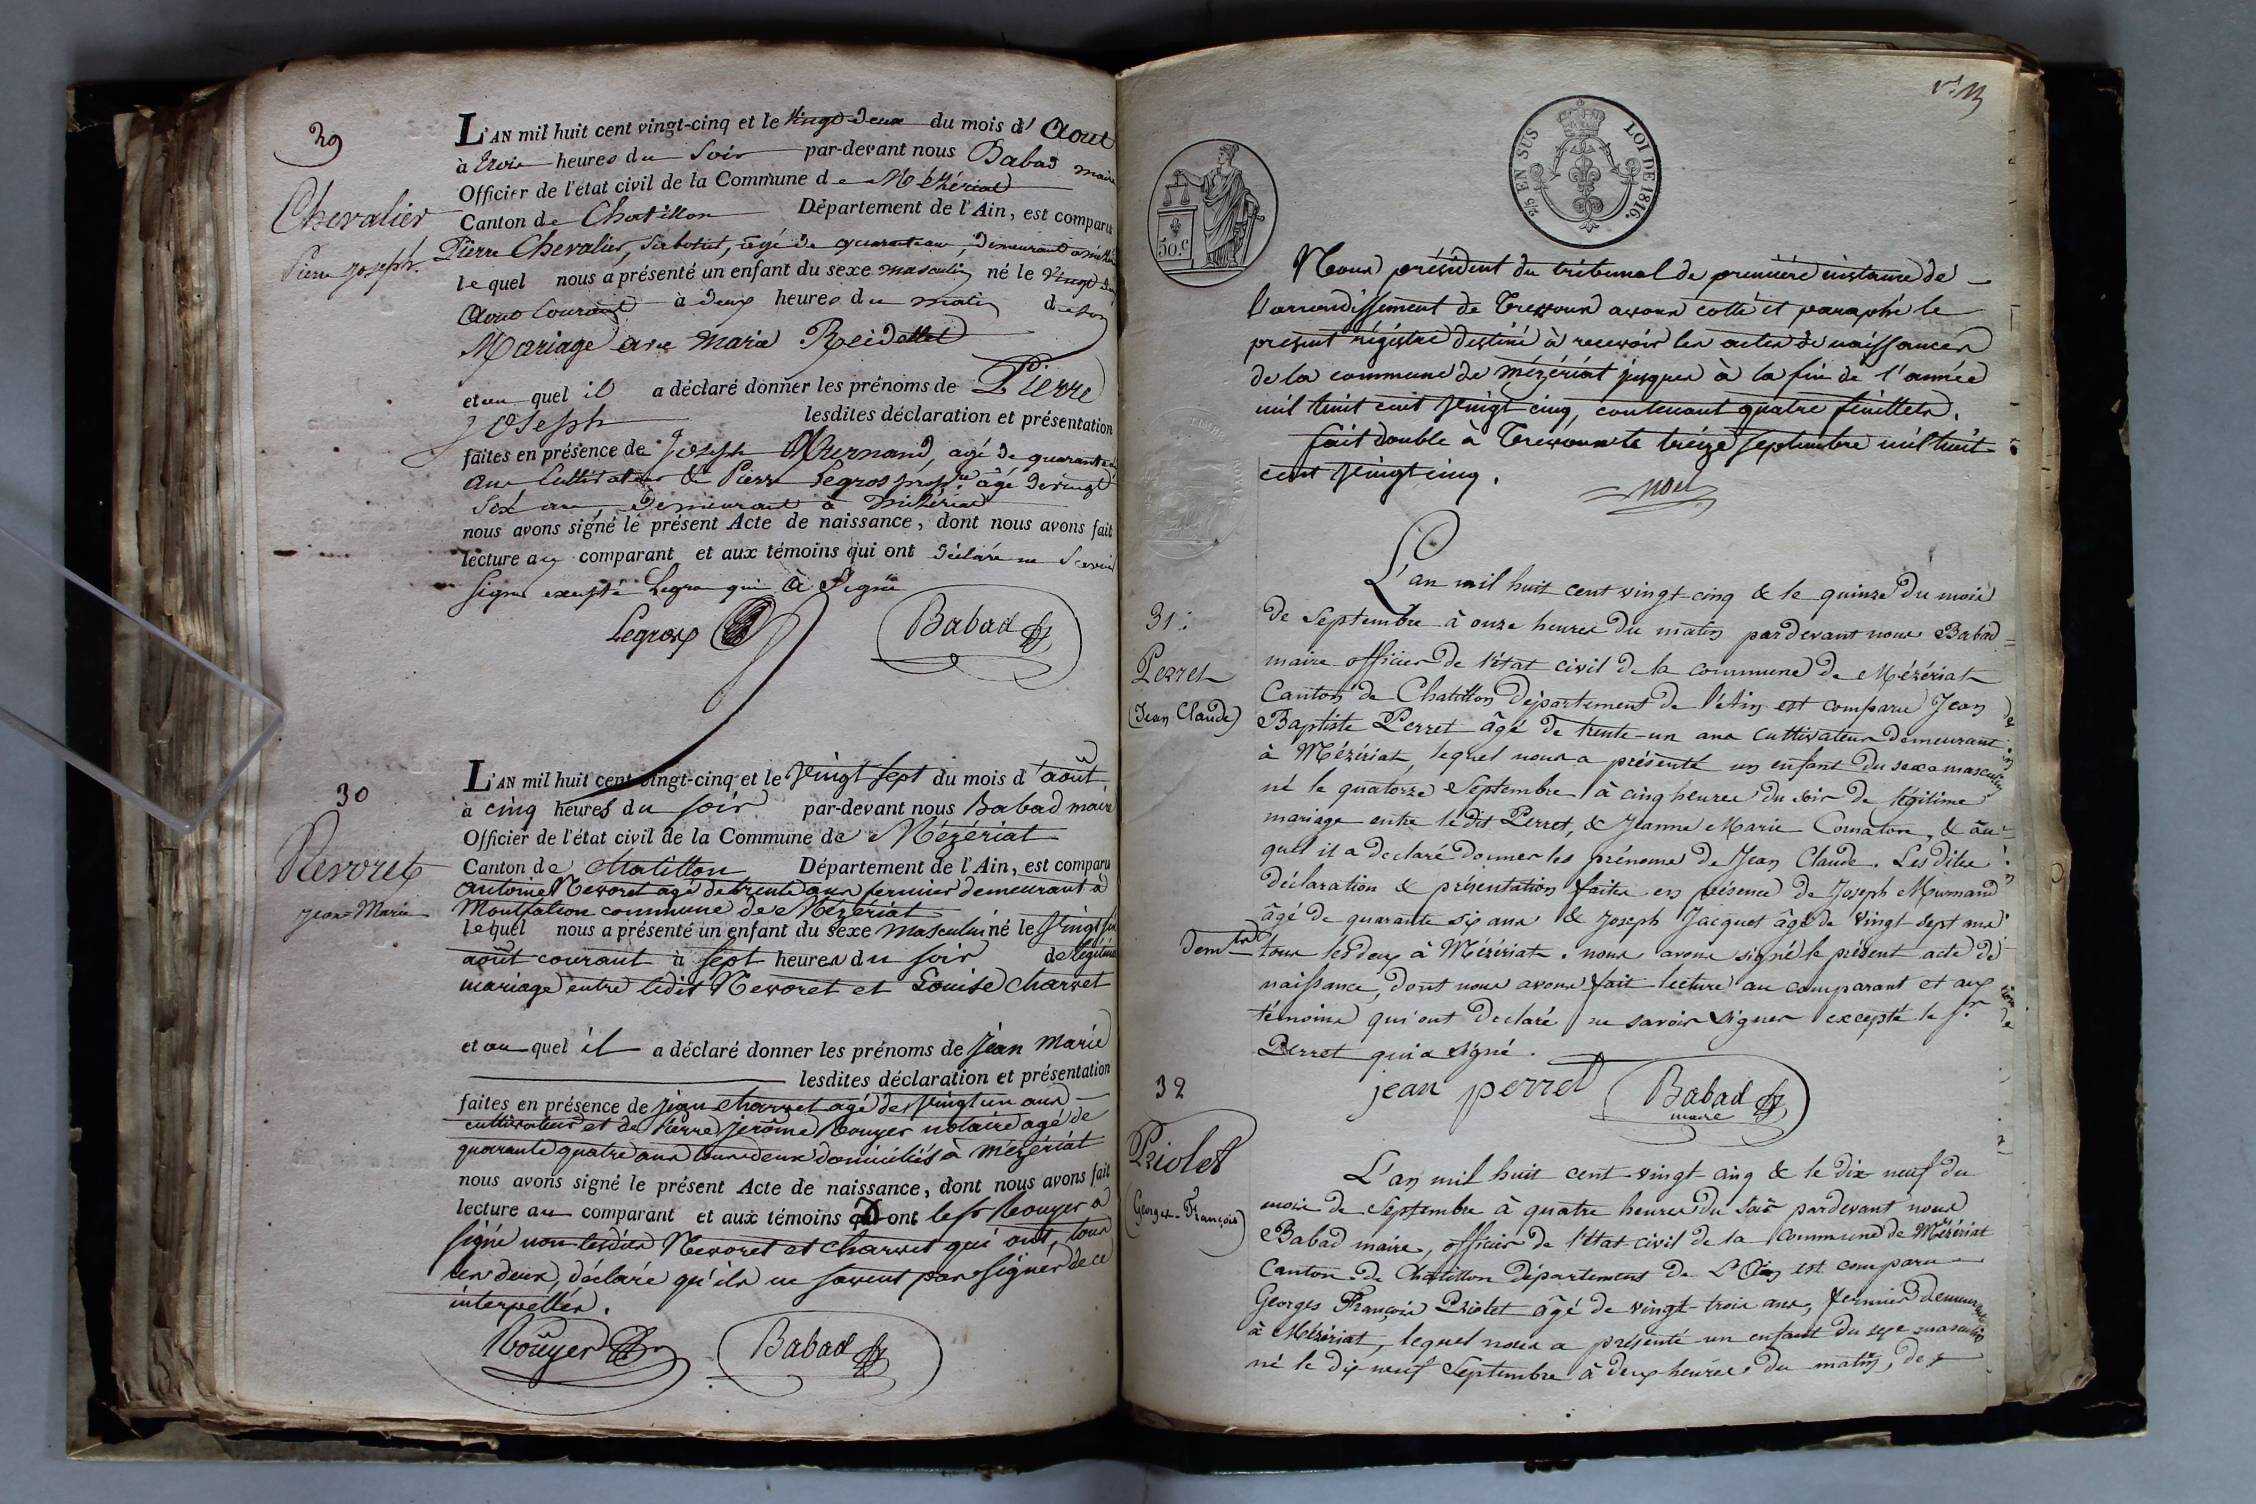 29
Chevalier
Pierre Joseph.
L'AN mil huit cent vingt-cinq et le vingt deux du mois d'Aout
à trois heures du Soir par-devant nous Babad maire
Officier de l'état civil de la Commune de Mézériat
Canton de Chatillon Département de l'Ain, est comparu
Pierre Chevalier, sabotier, agé de quarante ans, demeurant a
lequel nous a présenté un enfant du sexe masculin né le vingt deux
Aout Courant à deux heures du matin de son
Mariage avec Marie Reidellet
et au quel il a déclaré donner les prénoms de Pierre
Joseph lesdites déclaration et présentation
faites en présence de Joseph Murnand, agé de quarante
ans Cultivateur & Pierre Legros propre. âgé de vingt
Six ans, Demeurant à Mézériat
nous avons signé le présent Acte de naissance, dont nous avons fait
lecture au comparant et aux témoins qui ont déclaré ne Savoir
Signer excepté Legros qui à Signé
Legros Babad
30
Nevoret
Jean-Marie
L'AN mil huit cent vingt-cinq et le vingt sept du mois d'août
à cinq heures du soir par-devant nous Babad maire
Officier de l'état civil de la Commune de Mézériat
Canton de chatillon Département de l'Ain, est comparu
antoine Nevoret agé de trente ans fermier demeurant à
Montfalcon commune de Mézériat
lequel nous a présenté un enfant du sexe masculin né le vingt six
août courant à sept heures du soir de légitime
mariage entre ledit Nevoret et Louise charvet
et au quel il a déclaré donner les prénoms de jean marie
lesdites déclaration et présentation
faites en présence de jean charvet agé de vingt un ans
cultivateur et de Pierre jerôme Rouyer notaire agé de
quarante quatre ans tous deux domiciliés à mézériat
nous avons signé le présent Acte de naissance, dont nous avons fait
lecture au comparant et aux témoins ont le sr Rouyer a
signé non lesdits Nevoret et charvet qui ont, tous
les deux, déclaré qu'ils ne savent pas signer de ce
interpellés.
Roüyer Babad
50.c
2/5 EN SUS LOI DE 1816.
Nous président du tribunal de première instance de
l'arrondissement de Trevoux avons cotté et paraphé le
présent régistre destiné à recevoir les actes de naissances
de la commune de mézériat jusques à la fin de l'année
mil huit cent vingt cinq, contenant quatre feuillets.
fait double à Trevoux le treize septembre mil huit
cent vingt cinq.
31.
Perret
(Jean Claude)
L'an mil huit cent vingt-cinq & le quinze du mois
de Septembre à onze heures du matin pardevant nous Babad
maire officier de l'état civil de la commune de Mézériat
Canton de Chatillon département de l'Ain est comparu Jean
Baptiste Perret âgé de trente-un ans cultivateur demeurant
à Mézériat, lequel nous a présenté un enfant du sexe masculin
né le quatorze Septembre à cinq heures du soir de légitime
mariage entre le dit Perret, & Jeanne Marie Comaton, & au
quel il a declaré donner les prénoms de Jean Claude. Les dites
déclaration & présentation faites en présence de Joseph Murnand
âgé de quarante six ans & Joseph Jacquet âgé de vingt-sept ans
demts tous les deux à Mézériat. nous avons signé le présent acte de
naissance, dont nous avons fait lecture au comparant et aux
témoins qui ont declaré ne savoir signer excepté le sr.
Perret qui a signé.
jean perret Babad
maire
32
Priolet
(Georges-François)
L'an mil huit cent vingt-cinq & le dix neuf du
mois de Septembre à quatre heures du soir pardevant nous
Babad maire, officier de l'état civil de la commune de Mézériat
Canton de Chatillon département de L'Ain est comparu
Georges François Priolet âgé de vingt-trois ans, fermier demeurant
à Mézériat, lequel nous a présenté un enfant du sexe masculin
né le dix neuf Septembre à deux heures du matin, de